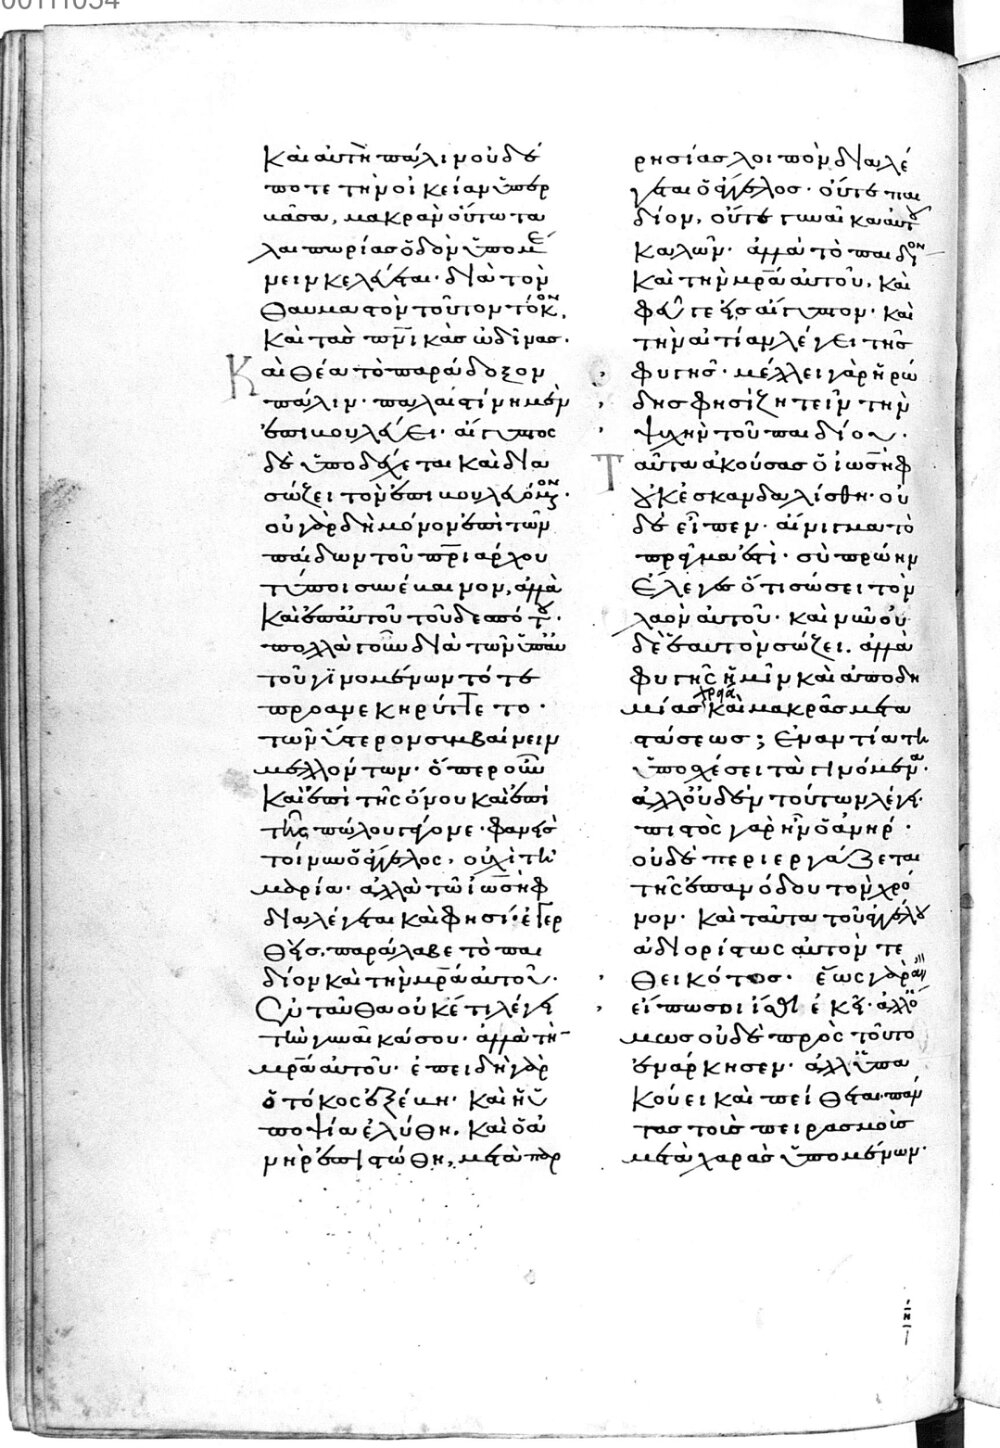 00111054
καὶ αὐτὴ πάλιν οὐδέ
ποτε τὴν οἰκείαν ὑπερ
βᾶσα, μακρὰν οὕτω τα
λαιπωρίας ὁδὸν ὑπομέ
νειν κελεύεται· διὰ τὸν
θαυμαστὸν τοῦτον τόκον,
καὶ τὰς πν̅ικὰς ὠδῖνας·
Καὶ θέα τὸ παράδοξον
πάλιν· παλαιστίνη μὲν
ἐπιβουλεύει· αἴγυπτος
δὲ ὑποδέχεται καὶ δια
σώζει τὸν ἐπιβουλευόμενον·
οὐ γὰρ δὴ μόνον ἐπὶ τῶν
παίδων τοῦ πρ̅ιάρχου
τύποι συνέβαινον, ἀλλὰ
καὶ ἐπ αὐτοῦ τοῦ δεσπότου·
πολλὰ γοῦν διὰ τῶν ὑπ αὐ
τοῦ γϊνομένων τότε
προανεκηρύττετο·
τῶν ὕστερον συμβαίνειν
μελλόντων· ὅπερ οὖν
καὶ ἐπὶ τῆς ὄνου καὶ ἐπὶ
τῆς πώλου γέγονε· φανεὶς
τοίνυν ὁ ἄγγελος, οὐχὶ τῆ
μαρία· ἀλλὰ τῶ ἰωσὴφ
διαλέγεται καὶ φησί· ἐγερ
θεὶς, παράλαβε τὸ παι
δίον καὶ τὴν μρ̅α αὐτοῦ·
Ἐνταῦθα οὐκέτι λέγει
τὴν γυναῖκά σου· ἀλλὰ τὴν
μρ̅α αὐτοῦ· ἐπειδὴ γὰρ
ὁ τόκος ἐξέβη· καὶ ἡ ὑ
ποψία ἐλύθη, καὶ ὁ ἀ
νὴρ ἐπιστώθη, μετὰ παρ
ρησίας λοιπὸν διαλέ
γεται ὁ ἄγγελος· οὔτε παι
δίον, οὔτε γυναῖκα αὐτοῦ
καλῶν· ἀλλὰ τὸ παιδίον
καὶ τὴν μρ̅α αὐτοῦ, καὶ
φεῦγε εἰς αἴγυπτον· καὶ
τὴν αἰτίαν λέγει τῆς
φυγῆς· μέλλει γὰρ ἡρώ
δης φησὶ ζητεῖν τὴν
ψυχὴν τοῦ παιδίου·
Ταῦτα ἀκούσας ὁ ἰωσὴφ
οὐκ ἐσκανδαλίσθη· οὐ
δὲ εἶπεν· αἴνιγμα τὸ
πρᾶγμα ἐστί· σὺ πρώην
ἔλεγες ὅτι σώσει τὸν
λαὸν αὐτοῦ· καὶ νῦν οὐ
δὲ ἑαυτὸν σώζει. ἀλλὰ
φυγῆς ἡμῖν καὶ ἀποδη
μίας χρεία καὶ μακρᾶς μετα
στάσεως; ἐναντία τῆ
ὑποσχέσει τὰ γινόμενα·
ἀλλ οὐδὲν τούτων λέγει·
πιστὸς γὰρ ἦν ὁ ἀνήρ·
οὐδὲ περιεργάζεται
τῆς ἐπανόδου τὸν χρό
νον· καὶ ταῦτα τοῦ ἀγγέλου
ἀδιορίστως αὐτὸν τε
θεικότος· ἕως γὰρ ἂν
εἴπω σοι ἴσθι ἐκεῖ· ἀλλ ὅ
μως οὐδὲ πρὸς τοῦτο
ἐνάρκησεν· ἀλλ ὑπα
κούει καὶ πείθεται πάν
τας τοὺς πειρασμοὺς
μετὰ χαρᾶς ὑπομένων·